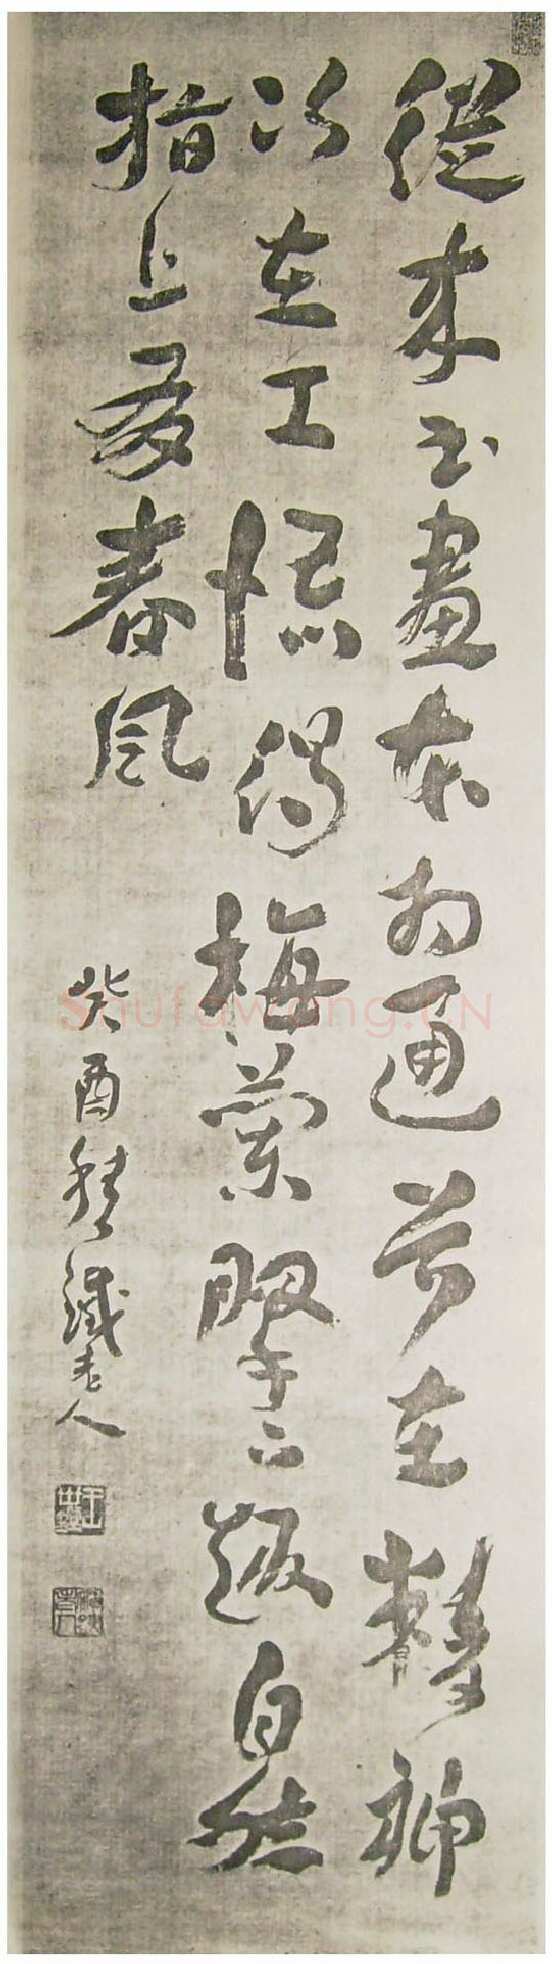 從來書畫本相通首在精神
次在工悟得梅蘭掔下趣自然
指上發春風
癸酉秋鐵老人
Shufawang.CN